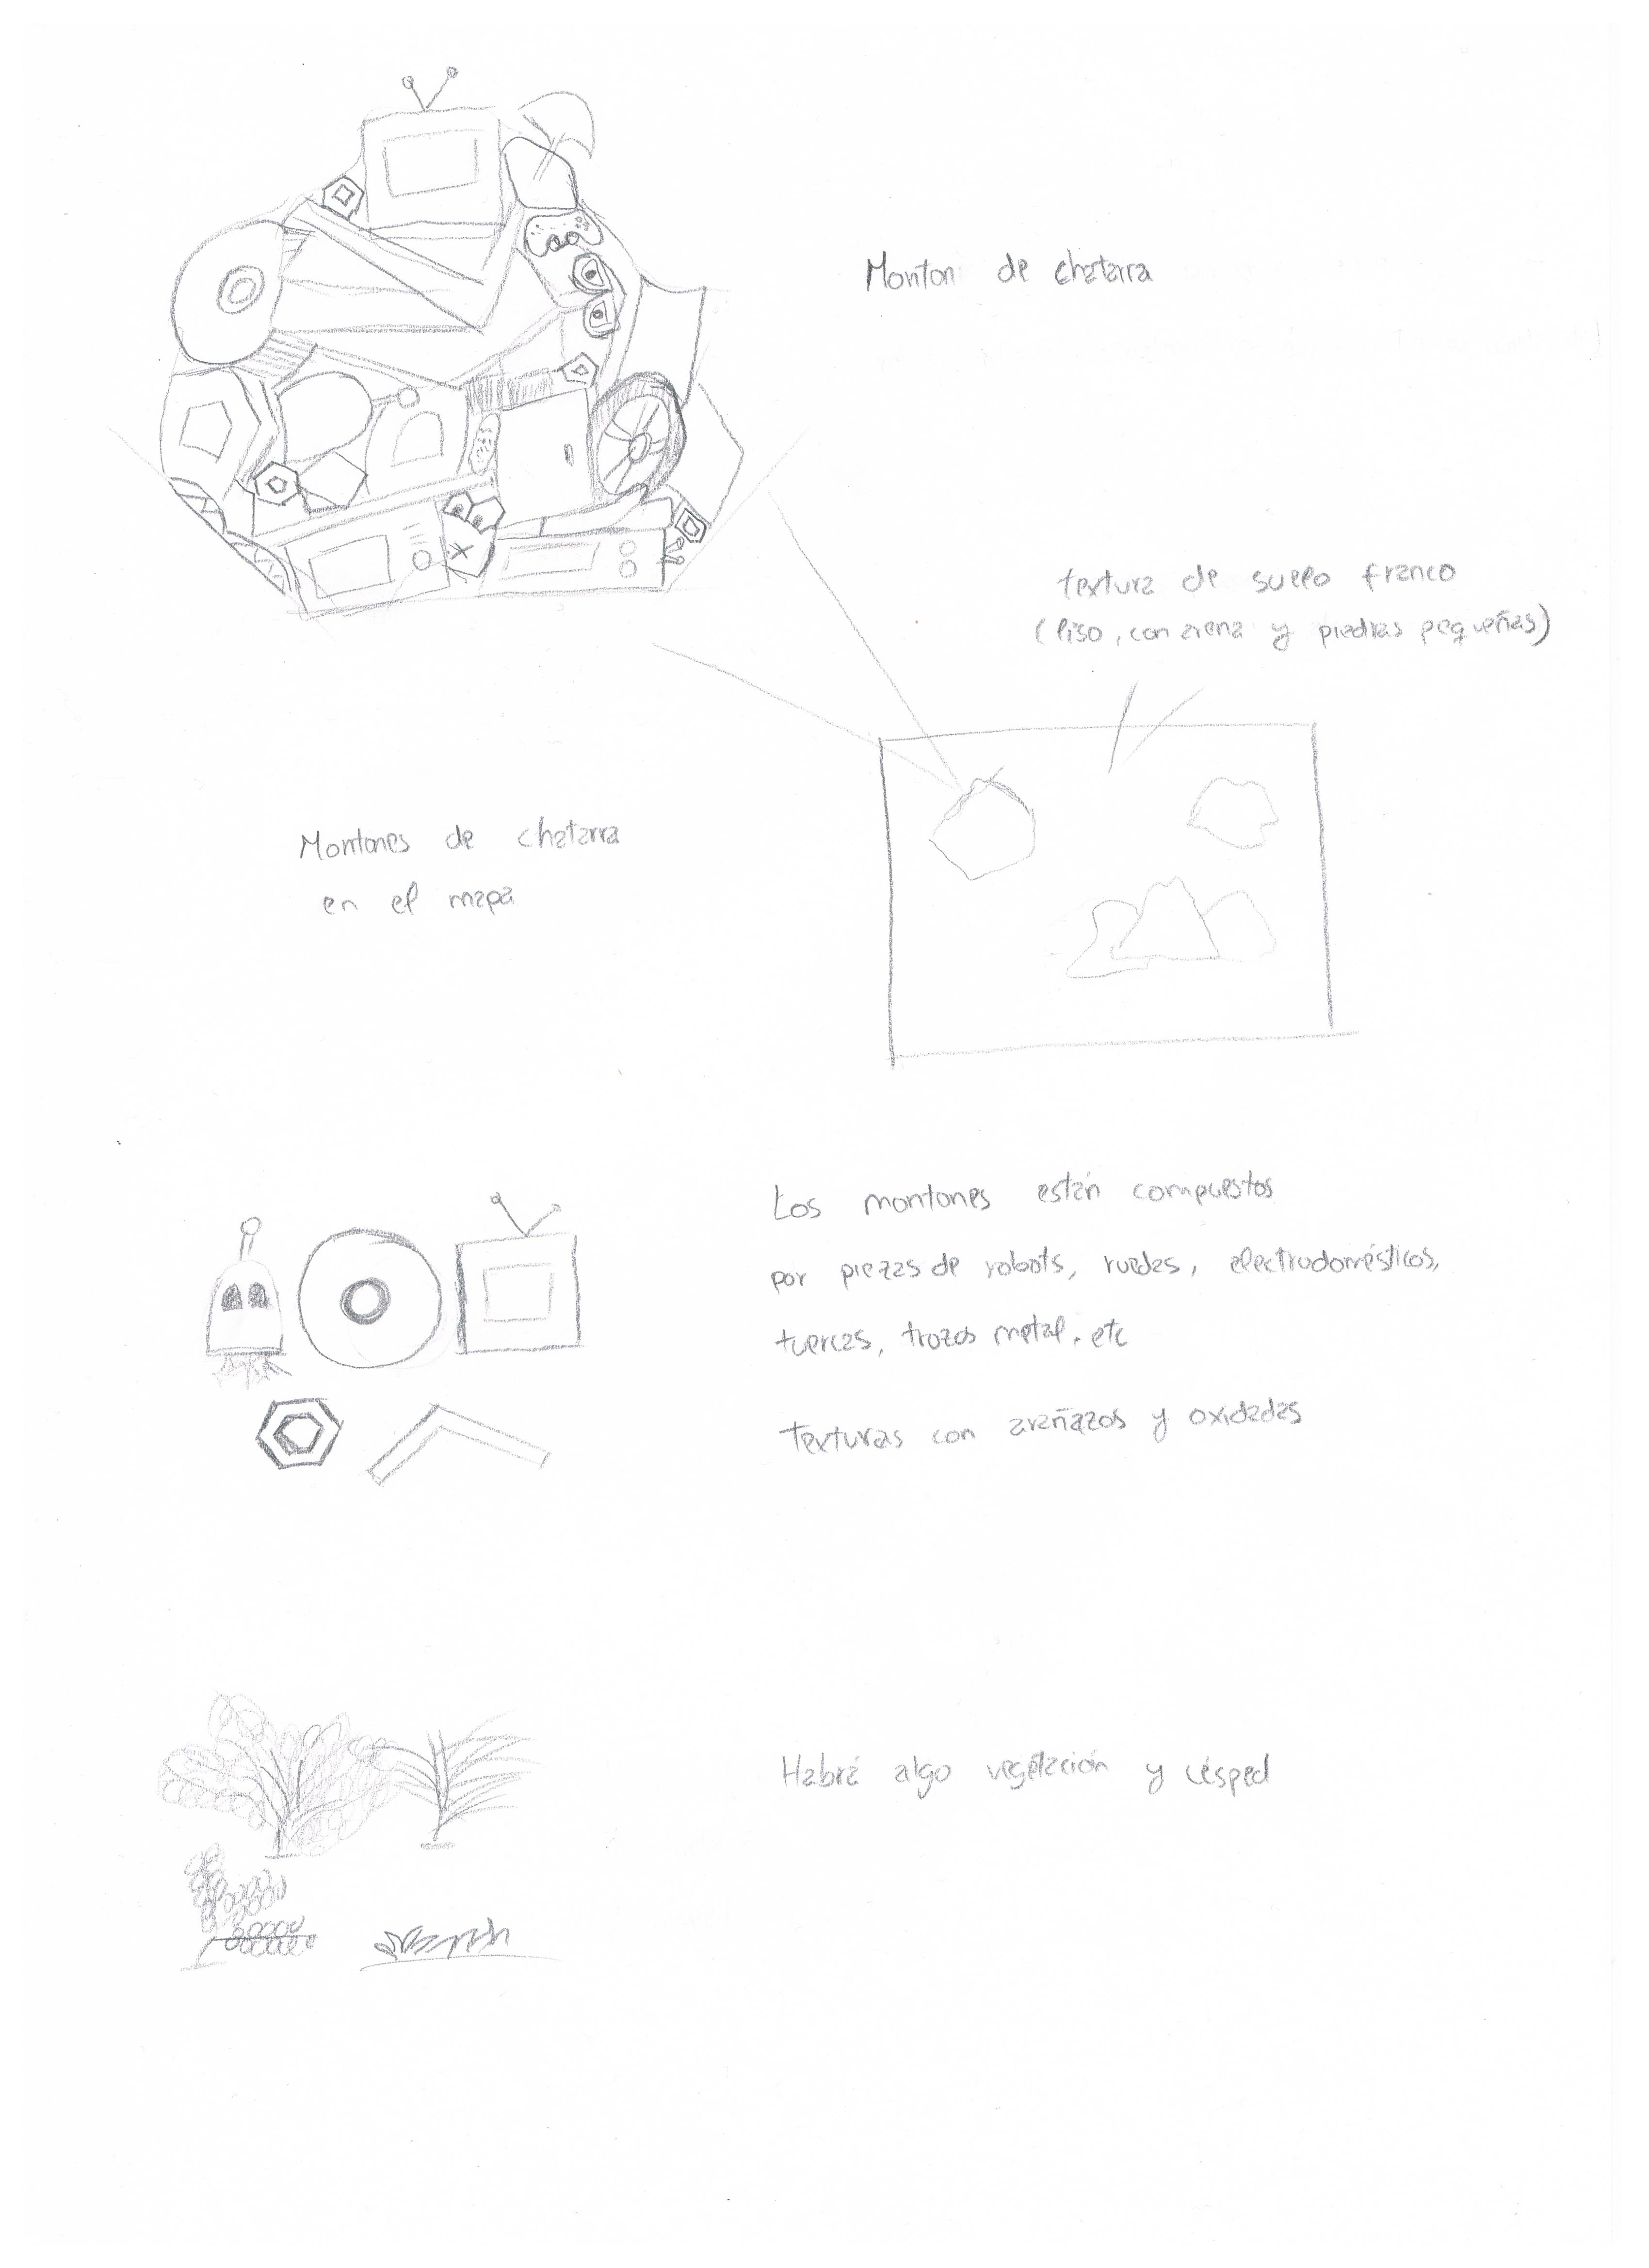 Monton de chatarra
textura de suelo franco
(liso, con arena y piedras pequeñas)
Montones de chatarra
en el mapa
Los montones están compuestos
por piezas de robots, ruedas, electrodomésticos,
tuercas, trozos metal, etc
Texturas con arañazos y oxidadas
Habrá algo vegetación y césped